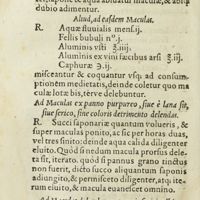 dubio adimentur.
Aliud, ad easdem Maculas.
R. Aquæ fluuialis mens.ij.
Fellis bubuli n°.j.
Aluminis vsti ʒ.iiij.
Aluminis ex vini fæcibus arsi ℥.ij.
Caphuræ ʒ.ij.
misceantur & coquantur vsq; ad consum-
ptionem medietatis, deinde colentur quo ma
culæ lotæ bis, térve delebuntur.
Ad Maculas ex panno purpureo, siue è lana sit,
siue serico, sine coloris detrimento delendas.
R. Succi saponariæ quantum volueris, & su-
per maculas ponito, ac sic per horas duas,
vel tres sinito: deinde aqua calida diligenter
eluito. Quòd si nondum macula prorsus dele
ta sit, iterato. quòd si pannus grano tinctus
non fuerit, dicto succo aliquantum saponis
adiungito, & perniscero diligenter, atq; ite-
rum eluito, & macula euanescet omnino.